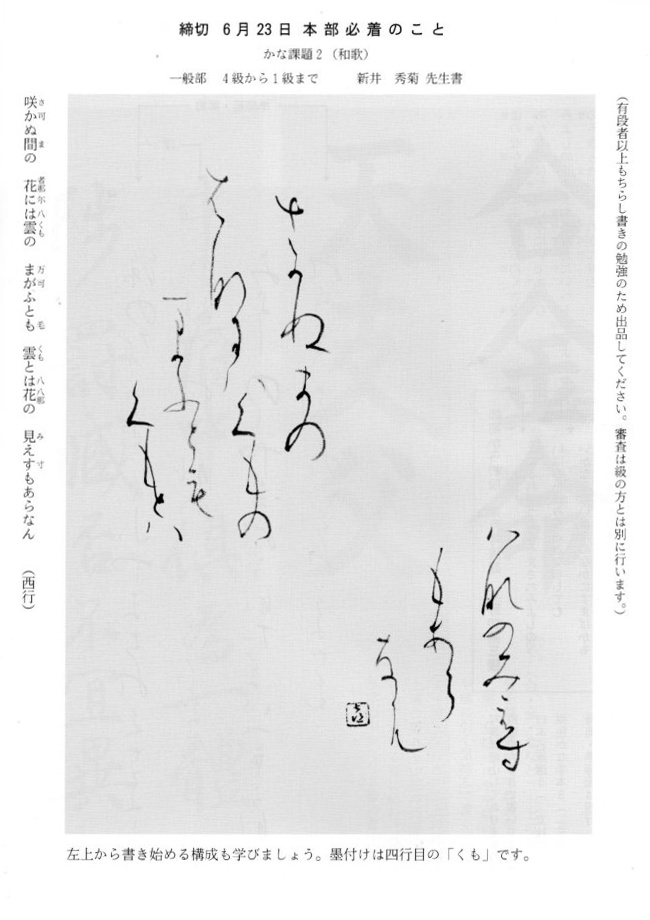 締切 6月23日 本部必着のこと
かな課題2（和歌）
一般部 4級から1級まで 新井 秀菊 先生書
（有段者以上もちらし書きの勉強のため出品してください。審査は級の方とは別に行います。）
さ可ぬまの
者那尓八くもの
万可ふとも毛
くもと八
八那のみえ寸
もあら
なん
咲かぬ間の 花には雲の まがふとも 雲とは花の 見えすもあらなん （西行）
左上から書き始める構成も学びましょう。墨付けは四行目の「くも」です。